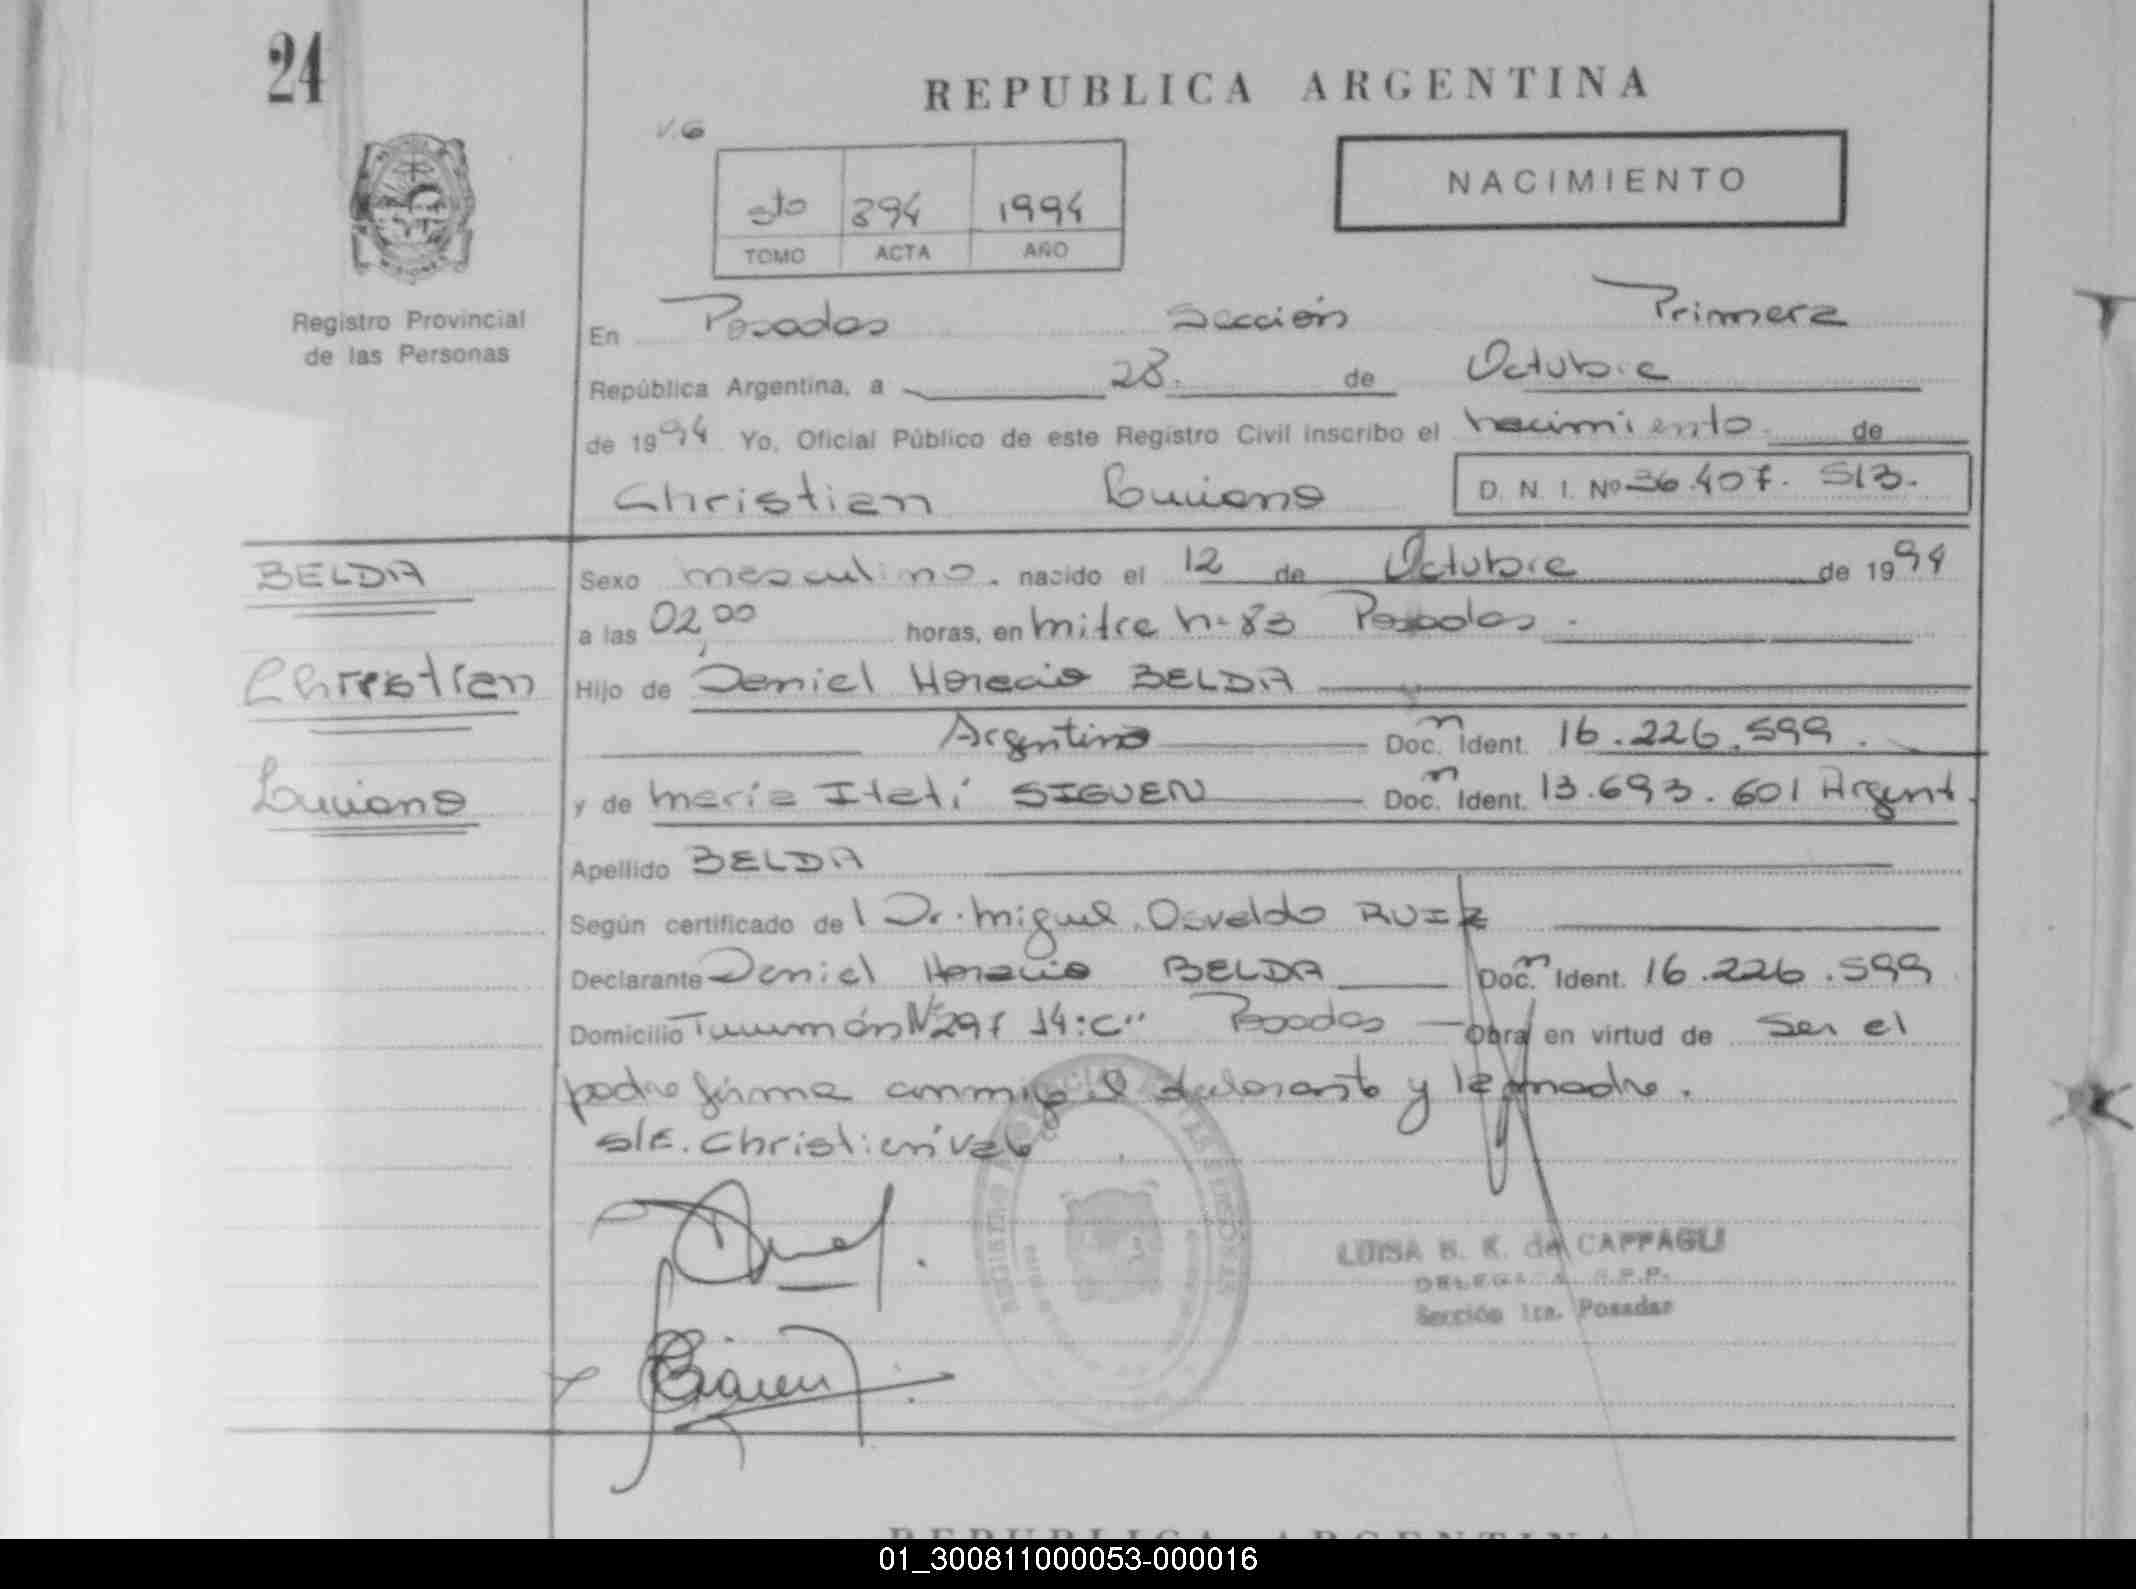 24
REPUBLICA ARGENTINA
V.G
5to 394 1994
TOMO ACTA AÑO
NACIMIENTO
Registro Provincial
de las Personas
En Posadas Sección Primera
República Argentina, a 28. de Octubre
de 1994 Yo, Oficial Público de este Registro Civil inscribo el nacimiento de
Christian Luciano D. N. I. Nº 36.407.513.
BELDA
Christian
Luciano
Sexo masculino. nacido el 12 de Octubre de 1994
a las 02,00 horas, en Mitre Nº 83 Posadas.
Hijo de Daniel Horacio BELDA
Argentino Doc. Ident. 16.226.599.
y de María Itatí SIGUEN Doc. Ident. 13.693.601 Argent.
Apellido BELDA
Según certificado del Dr. Miguel Osvaldo RUIZ
Declarante Daniel Horacio BELDA Doc. Ident. 16.226.599
Domicilio Tucumán Nº 297 14:C" Posadas Obra en virtud de ser el
padre firma conmigo el declarante y la madre.
s/E. Christian vale
LUISA B. K. de CAPPAGLI
DELEGADA R.P.P.
Sección 1ra. Posadas
REPUBLICA ARGENTINA
01_300811000053-000016